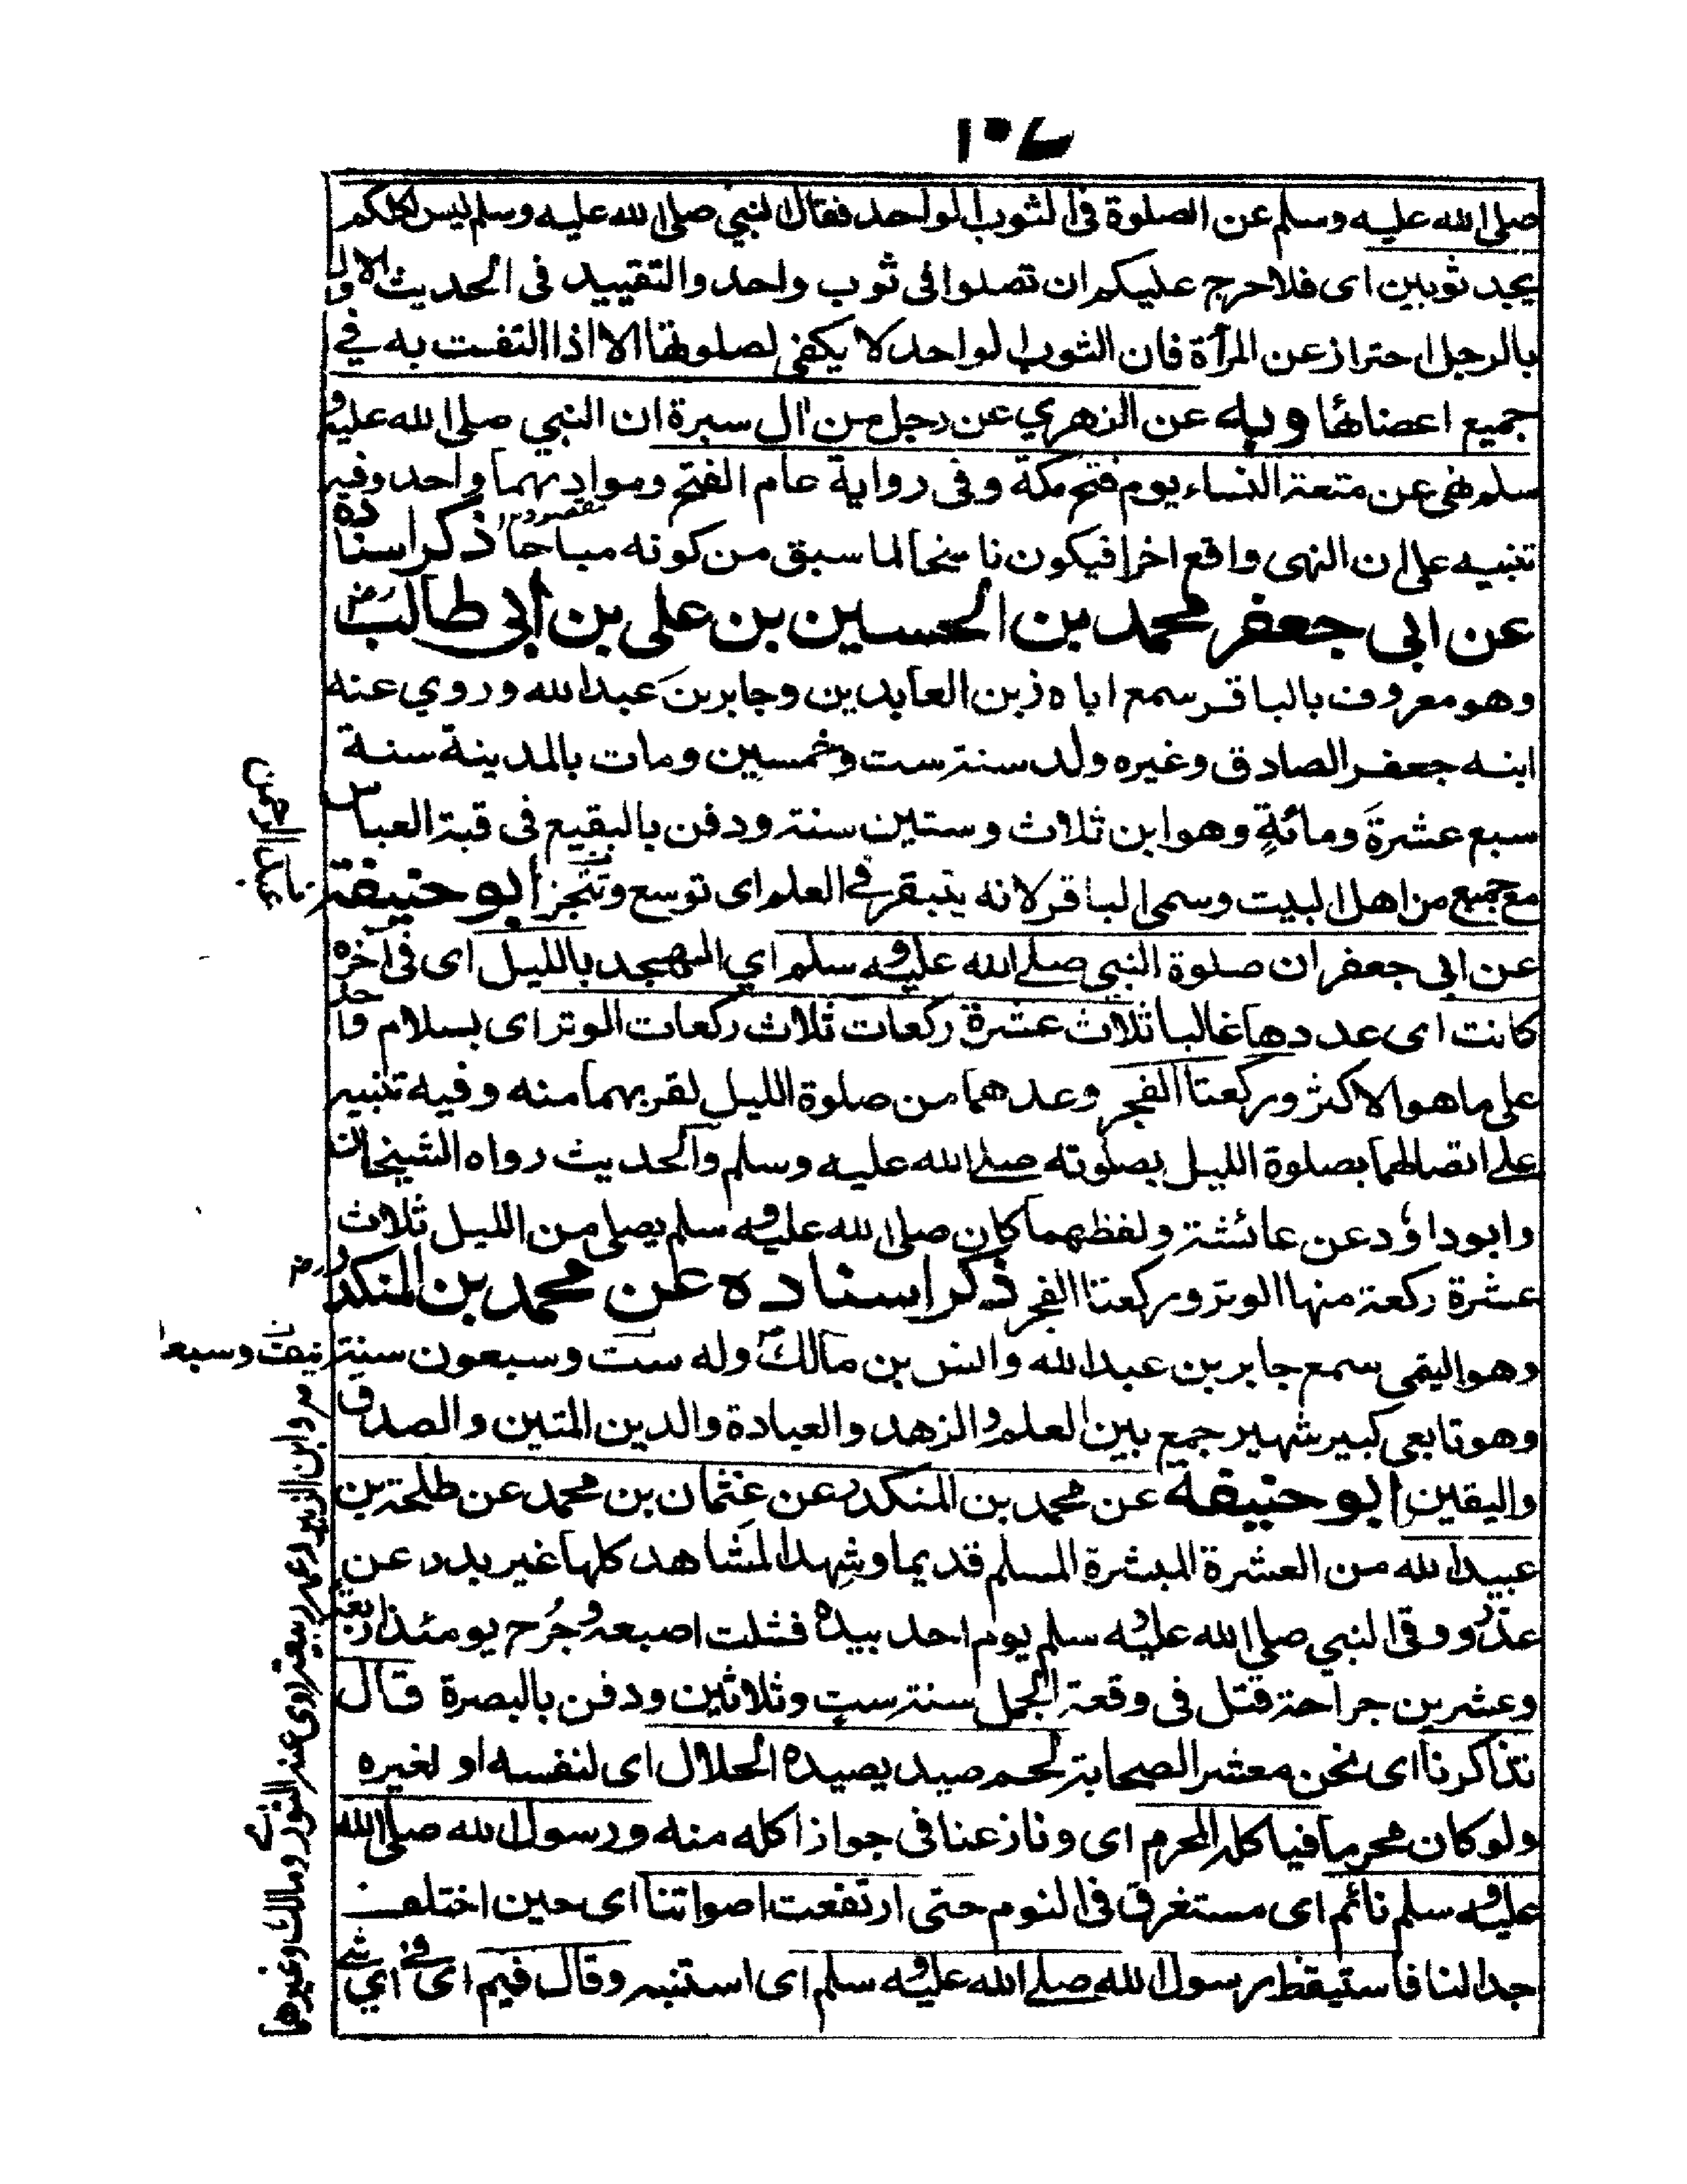 صلى الله عليه وسلم عن الصلوة فى الثوب الواحد فقال النبي صلى الله عليه وسلم ليس كلكم
يجد ثوبين اى فلا حرج عليكم ان تصلوا فى ثوب واحد والتقييد فى الحديث الاول
بالرجل احتراز عن المرأة فان الثوب الواحد لا يكفى لصلوتها الا اذا التفت به في
جميع اعضائها وبه عن الزهري عن رجل من ال سبرة ان النبي صلى الله عليه و
سلم نهى عن متعة النساء يوم فتح مكة وفى رواية عام الفتح وموادهما واحد وفيه
تنبيه على ان النهى واقع اخرا فيكون ناسخا لما سبق من كونه مباحا ذكر اسناده
عن ابى جعفر محمد بن الحسين بن على بن ابى طالب رض
وهو معروف بالباقر سمع اباه زين العابدين وجابر بن عبد الله وروي عنه
ابنه جعفر الصادق وغيره ولد سنة ست وخمسين ومات بالمدينة سنة
سبع عشرة ومائة وهو ابن ثلاث وستين سنة ودفن بالبقيع فى قبة العباس
مع جميع من اهل البيت وسمى الباقر لانه يتبقر في العلم اى توسع وتبحر ابو حنيفة
عن ابى جعفر ان صلوة النبي صلے الله عليه وسلم اي التهجد بالليل اى فى اخره
كانت اى عددها غالبا ثلاث عشرة ركعات ثلاث ركعات الوتر اى بسلام واحد
على ما هو الاكثر وركعتا الفجر وعدهما من صلوة الليل لقربهما منه وفيه تنبيه
علے اتصالهما بصلوة الليل بصلوته صلے الله عليه وسلم والحديث رواه الشيخان
وابو داؤد عن عائشة ولفظهما كان صلى الله عليه وسلم يصلى من الليل ثلاث
عشرة ركعة منها الوتر وركعتا الفجر ذكر اسناده عن محمد بن المنكدر رض
وهو اليقى سمع جابر بن عبد الله وانس بن مالك وله ست وسبعون سنة
وهو تابعى كبير شهير جمع بين العلم والزهد والعبادة والدين المتين والصدق
واليقين ابو حنيفة عن محمد بن المنكدر عن عثمان بن محمد عن طلحة بن
عبيد الله من العشرة المبشرة المسلم قديما وشهد المشاهد كلها غير بدر عن
عذر ووقى النبي صلى الله عليه وسلم يوم احد بيده فشلت اصبعه وجُرح يومئذ اربعة
وعشرين جراحة قتل فى وقعة الجمل سنة ست وثلاثين ودفن بالبصرة قال
تذاكرنا اى نحن معشر الصحابة لحم صيد يصيده الحلال اى لنفسه او لغيره
ولو كان محرما فياكله المحرم اى ونازعنا فى جواز اكله منه ورسول الله صلى الله
عليه وسلم نائم اى مستغرق فى النوم حتى ارتفعت اصواتنا اى حين اختلف
جدالنا فاستيقظ رسول الله صلے الله عليه وسلم اى استنبه وقال فيم اى في اي شئ
مر وابن الزبير وعمه ربيعة روى عنه الثوري ومالك وغيرهما